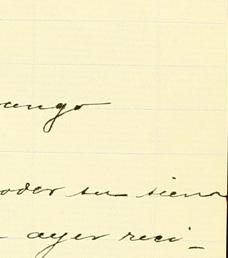 ango
oder su siem
ayer reci-